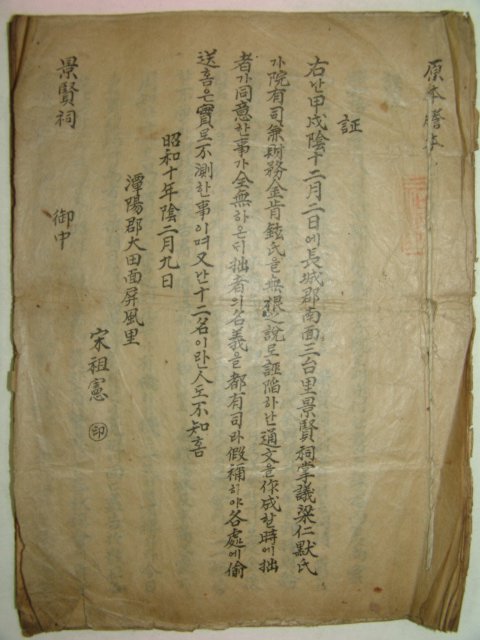 原本謄本
証
右난甲戌陰十二月二日에長城郡南面三台里景賢祠掌議梁仁默氏
가院有司兼財務金肯鉉氏을無根之說로誣陷하난通文을作成할時에拙
者가同意한事가全無하온터拙者의名義을都有司라假補하야各處에偷
送홈은實로不測한事이며又난十二名이란人도不知홈
昭和十年陰二月九日
潭陽郡大田面屏風里
宋祖憲 印
景賢祠 御中